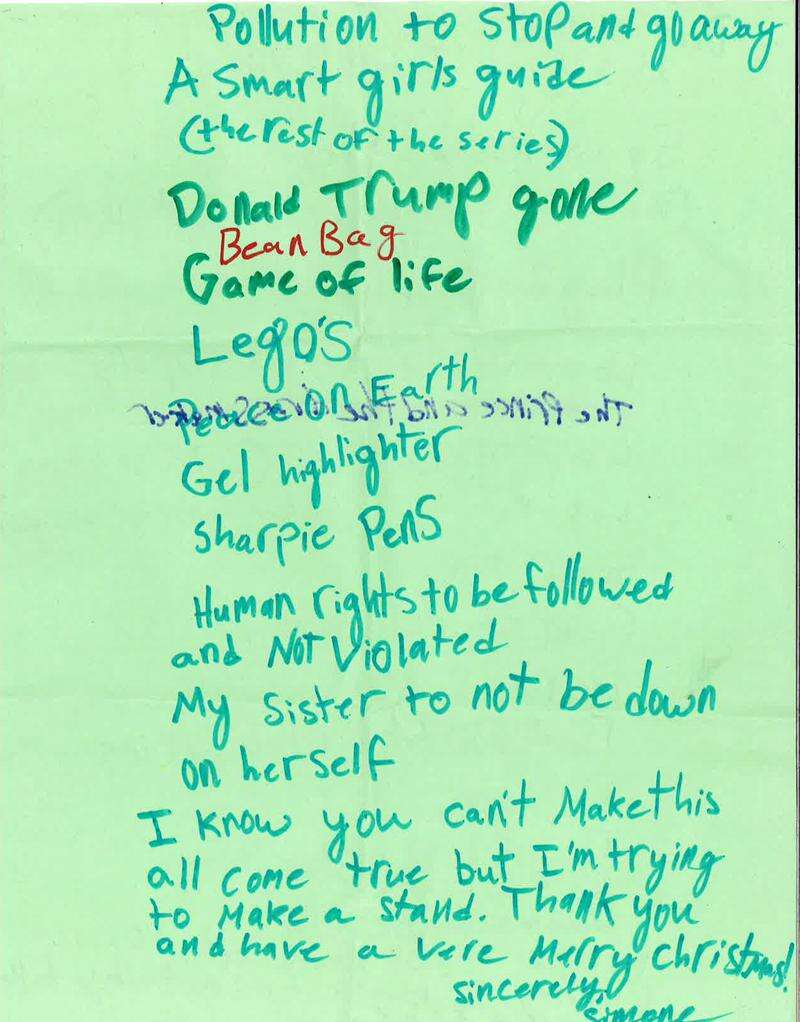 Pollution to stop and go away
A Smart girls guide
(the rest of the series)
Donald Trump gone
Bean Bag
Game of life
Lego's
Peace on Earth
The Prince and the Dressmaker
Gel highlighter
Sharpie Pens
Human rights to be followed
and Not Violated
My Sister to not be down
on herself
I know you can't Make this
all come true but I'm trying
to Make a stand. Thank you
and have a vere Merry Christmas!
sincerely,
simone